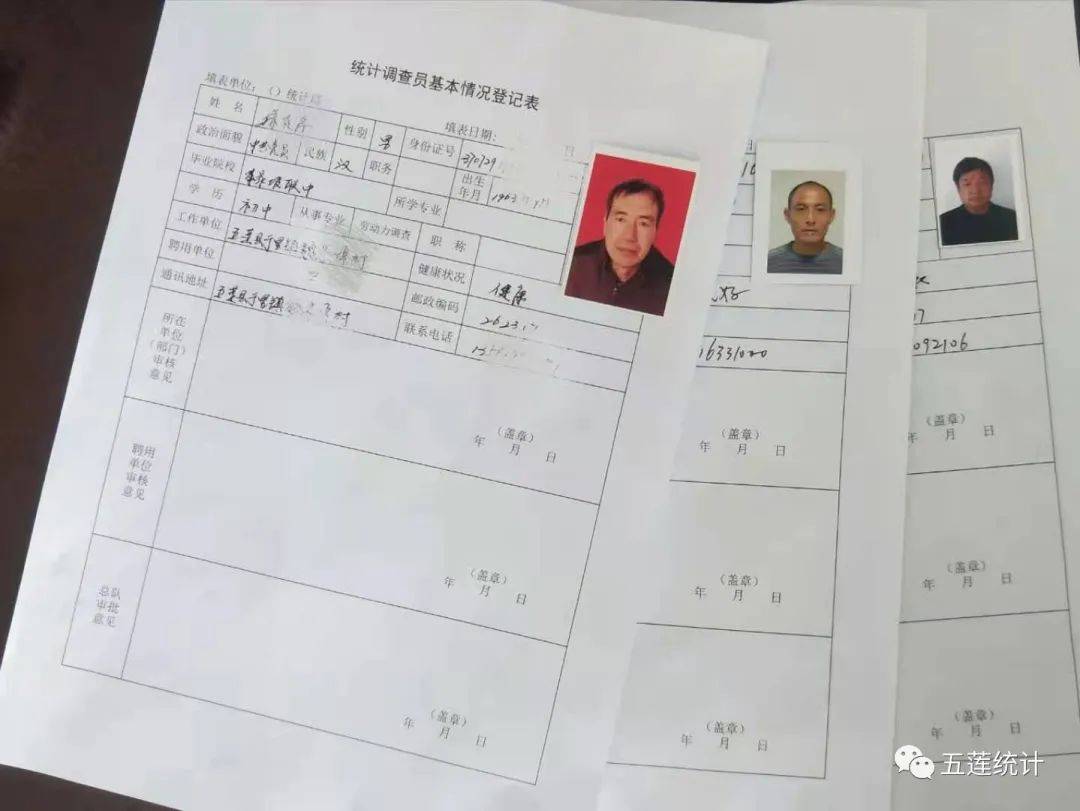 统计调查员基本情况登记表
填表单位：（）统计
填表日期： 日
姓 名 性别 男 身份证号 370129
政治面貌 中共党员 民族 汉 职务 出生年月 1963
毕业院校 联中 所学专业
学 历 初中 从事专业 劳动力调查 职 称
工作单位 五莲县于里镇 村 健康状况 健康
聘用单位 邮政编码 2623
通讯地址 五莲县于里镇 村 联系电话
所在单位（部门）审核意见
（盖章）
年 月 日
聘用单位审核意见
（盖章）
年 月 日
总队审批意见
（盖章）
年 月 日
好
16331000
（盖章）
年 月 日
（盖章）
年 月 日
（盖章）
年 月 日
092106
（盖章）
年 月 日
（盖章）
年 月 日
（盖章）
年 月 日
五莲统计